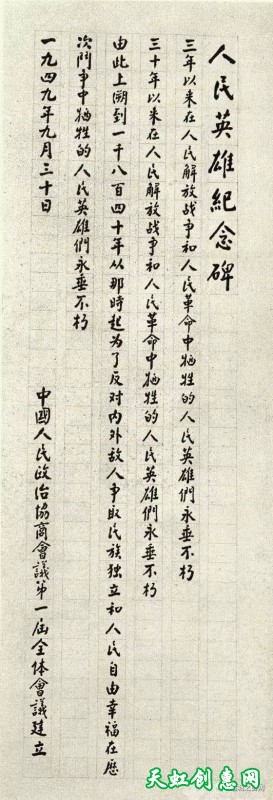 人民英雄紀念碑
三年以来在人民解放战争和人民革命中牺牲的人民英雄們永垂不朽
三十年以来在人民解放战争和人民革命中牺牲的人民英雄們永垂不朽
由此上溯到一千八百四十年从那時起为了反对内外敌人争取民族独立和人民自由幸福在歷
次鬥争中牺牲的人民英雄們永垂不朽
一九四九年九月三十日
中國人民政治協商會議第一届全体會議建立
天虹创意网